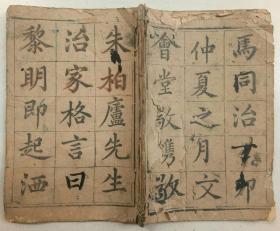 焉同治丁卯
仲夏之月父
薈堂敬鐫敬
朱柏廬先生
治家格言曰
黎明即起洒